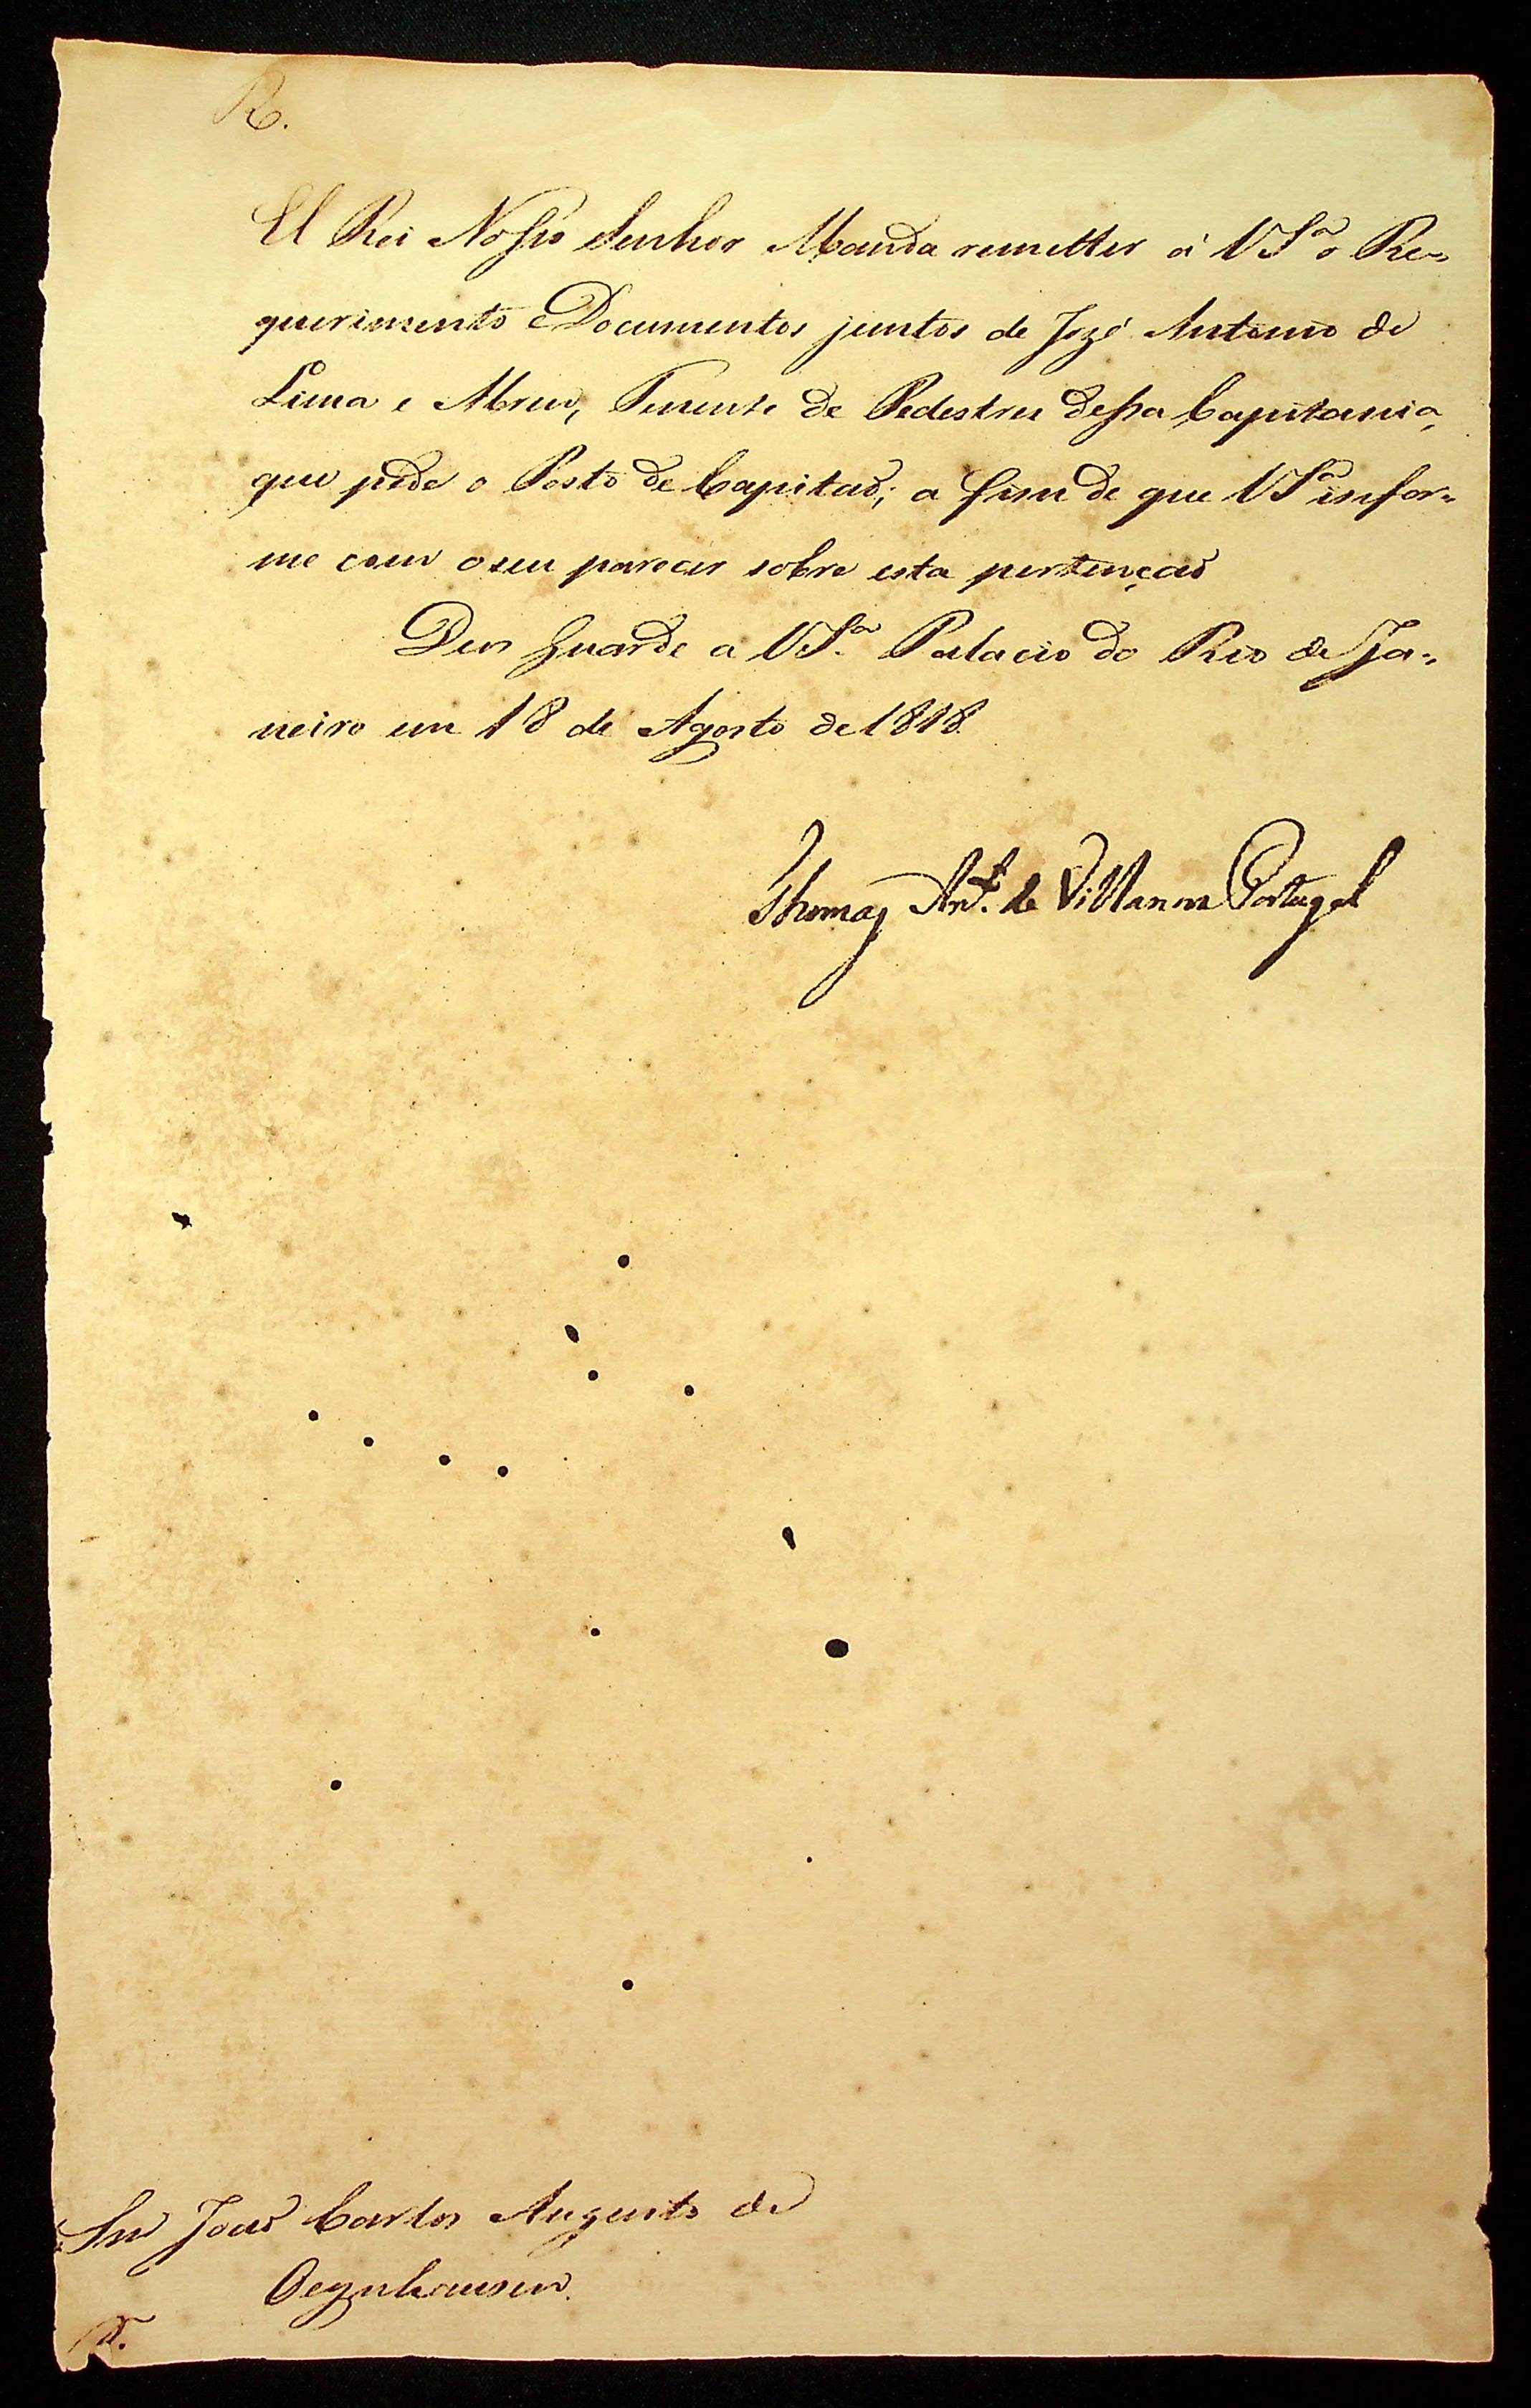 R.
El Rei Nosso Senhor Manda remetter á VSª o Re-
querimento e Documentos juntos de Jozé Antonio de
Lima e Abreu, Tenente de Pedestres dessa Capitania,
que pede o Posto de Capitaõ; a fim de que VSª infor-
me com o seu parecer sobre esta pertençaõ
Deos Guarde a VSª. Palacio do Rio de Ja-
neiro em 18 de Agosto de 1818.
Thomaz Antº. de Villanova Portugal
Snr Joaõ Carlos Augusto de
Oeynhausen.